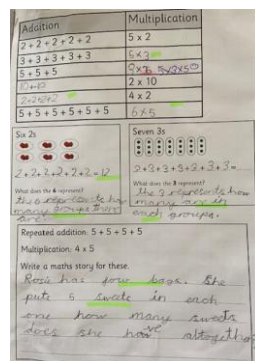 Addition Multiplication
2 + 2 + 2 + 2 + 2 5 x 2
3 + 3 + 3 + 3 + 3 5x3
5 + 5 + 5
10+10 2 x 10
2+2+2+2 4 x 2
5 + 5 + 5 + 5 + 5 + 5 6x5
Six 2s
2+2+2+2+2+2=12
What does the 6 represent?
the 6 represents how
many groups there
are.
Seven 3s
3+3+3+3+3+3+3=
What does the 3 represent?
the 3 represents how
many are in
each groups.
Repeated addition: 5 + 5 + 5 + 5
Multiplication: 4 x 5
Write a maths story for these.
Rosie has four bags. She
puts 5 sweets in each
one how many sweets
does she have altogether